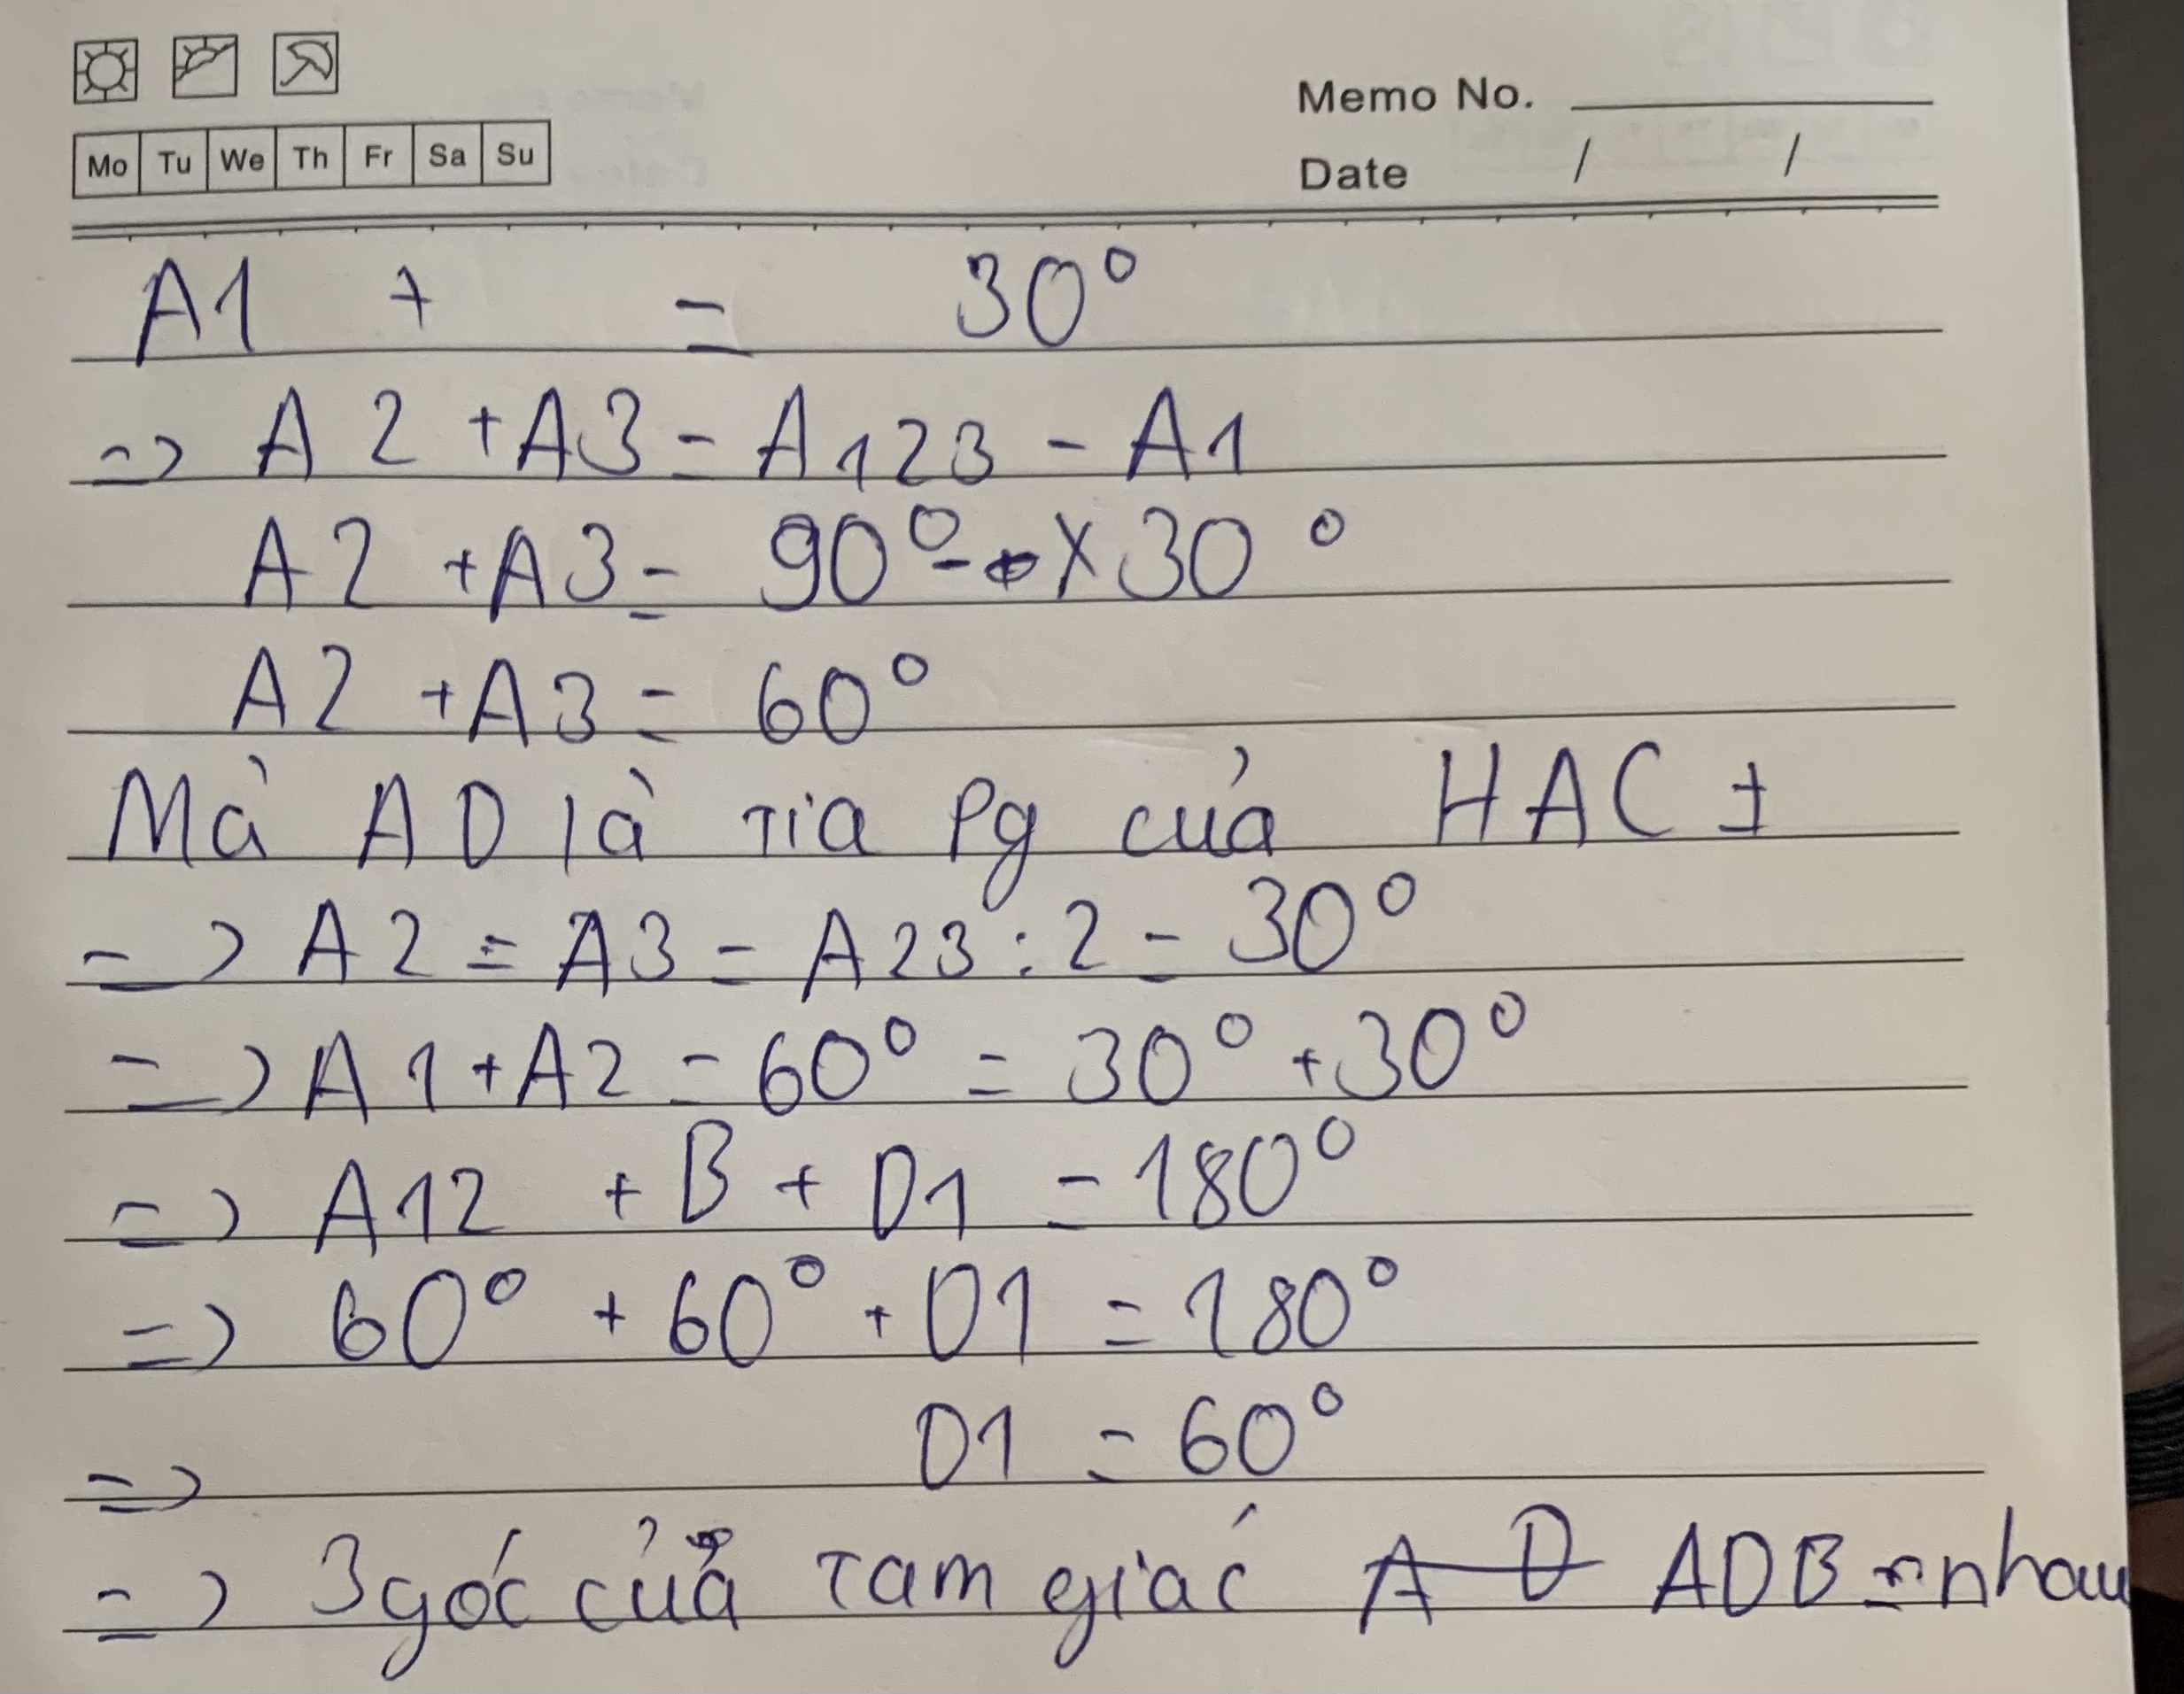 Memo No.
Mo Tu We Th Fr Sa Su
Date / /
A1 + = 30°
=> A2 + A3 = A123 - A1
A2 + A3 = 90° - 30°
A2 + A3 = 60°
Mà AD là tia Pg của HAC
=> A2 = A3 = A23 : 2 = 30°
=> A1 + A2 = 60° = 30° + 30°
=> A12 + B + D1 = 180°
=> 60° + 60° + D1 = 180°
=> D1 = 60°
=> 3 góc của tam giác ADB = nhau